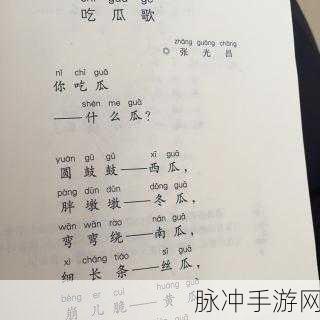 chī guā gē
吃瓜歌
zhāng guāng chāng
◎ 张光昌
nǐ chī guā
你吃瓜
shén me guā
——什么瓜？
yuán gǔ gǔ xī guā
圆鼓鼓——西瓜，
pàng dūn dūn dōng guā
胖墩墩——冬瓜，
wān wān rào nán guā
弯弯绕——南瓜，
xì cháng tiáo sī guā
细长条——丝瓜，
bēng er cuì huáng guā
崩儿脆——黄瓜
脉冲手游网